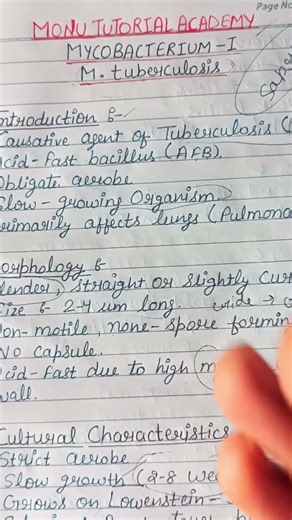 Page No
MONU TUTORIAL ACADEMY
MYCOBACTERIUM-I
M. tuberculosis
ntroduction :-
Causative agent of Tuberculosis (
Acid-fast bacillus (AFB).
Obligate aerobe
Slow-growing Organism.
rimarily affects lungs (Pulmona
orphology :-
lender, Straight or slightly Cur
Size :- 2-4 µm long. wide →
Non-motile, none-spore formin
No capsule.
Acid-fast due to high m
wall.
Cultural Characteristics
Strict aerobe
Slow growth (2-8 we
Grows on Lowenstein-